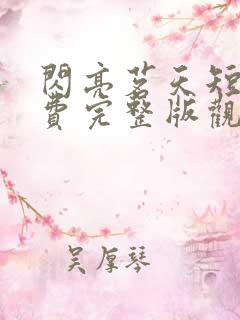 閃亮茗天短
費完整版觀
吴厚琴